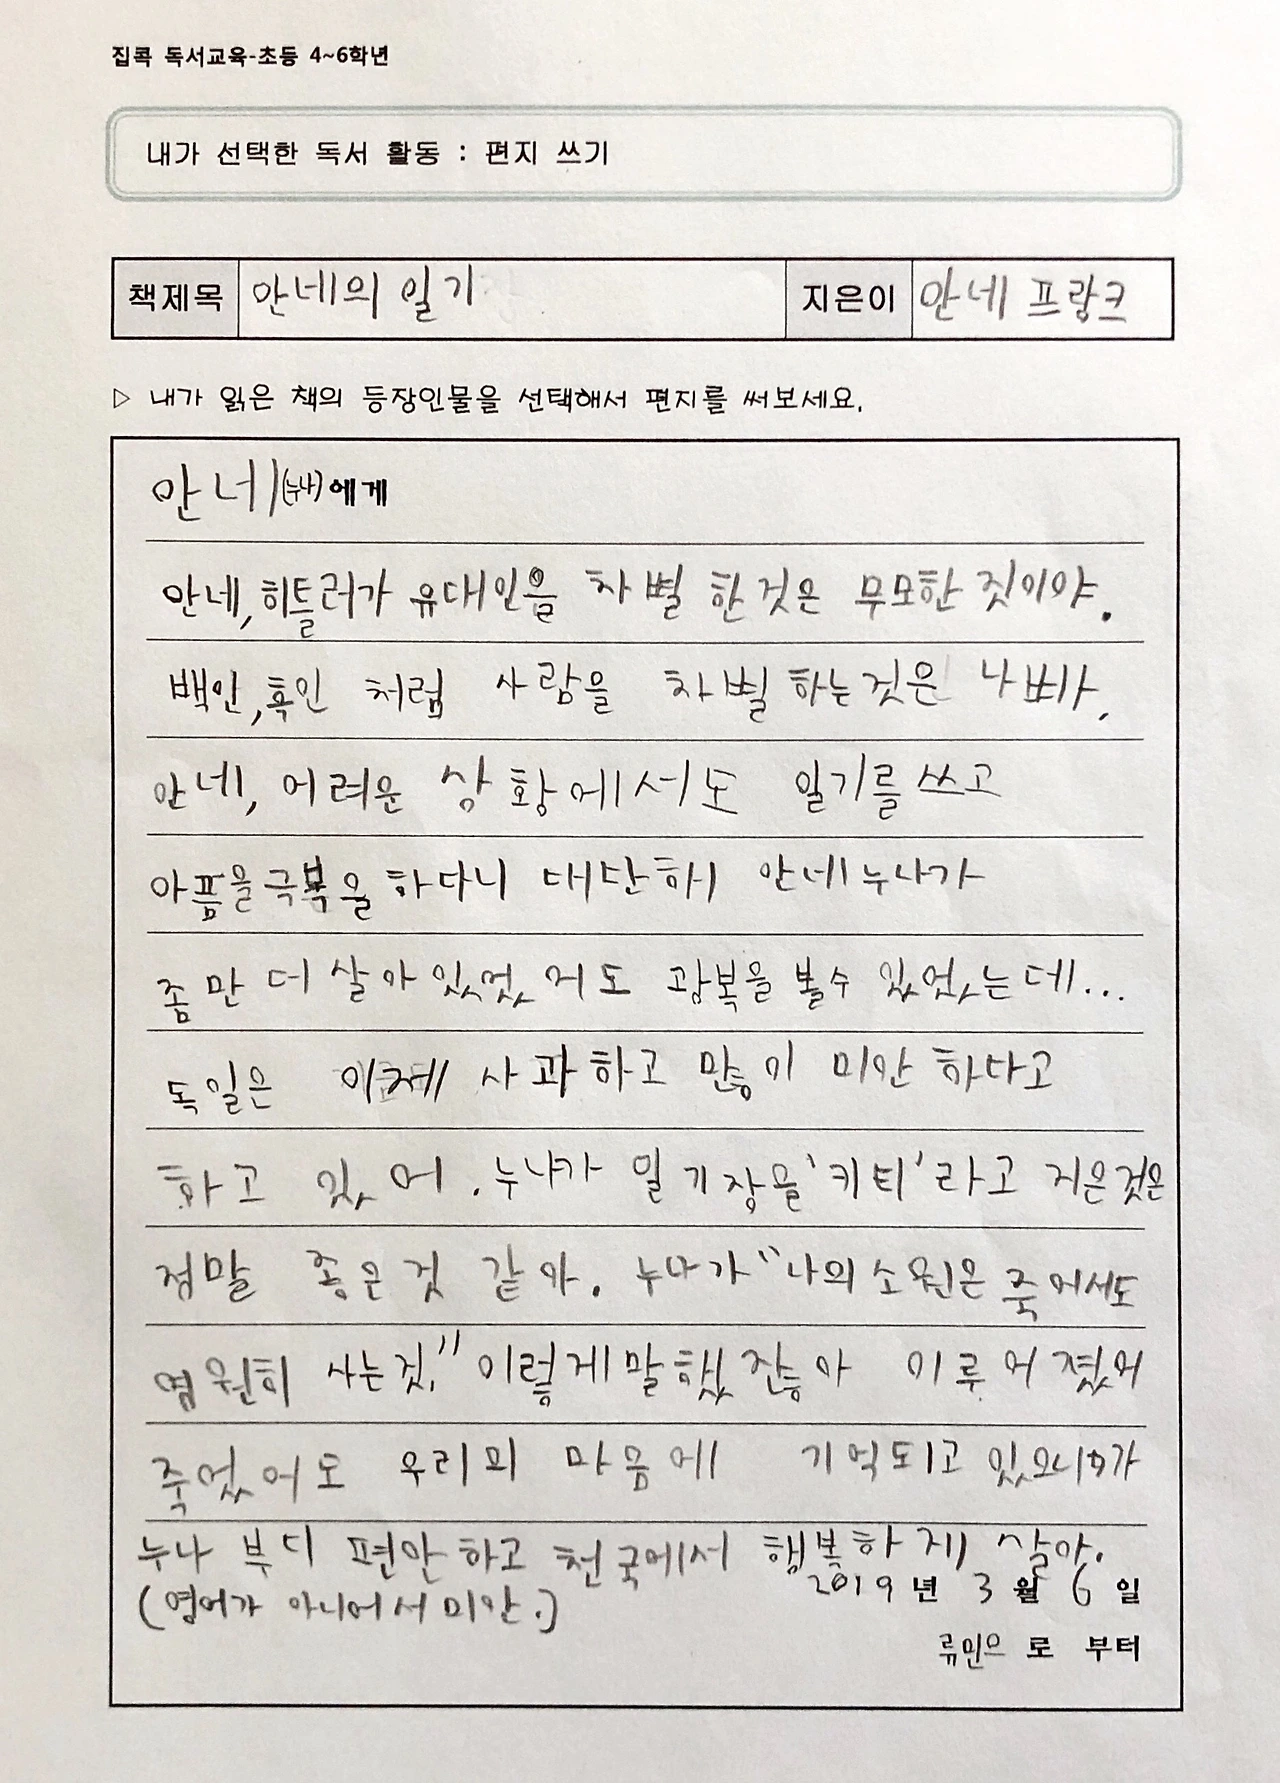 집콕 독서교육-초등 4~6학년
내가 선택한 독서 활동 : 편지 쓰기
책제목 안네의 일기 지은이 안네 프랑크
▷ 내가 읽은 책의 등장인물을 선택해서 편지를 써보세요.
안네(누나)에게
안네, 히틀러가 유대인을 차별 한것은 무모한 짓이야.
백인, 흑인 처럼 사람을 차별하는것은 나빠,
안네, 어려운 상황에서도 일기를 쓰고
아픔을극복을하다니 대단해 안네누나가
좀만 더 살아있었 어도 광복을 볼수 있었는데...
독일은 이제 사과하고 많이 미안 하다고
하고 있어. 누나가 일기장을 '키티'라고 지은것은
정말 좋은것 같아. 누나가 "나의 소원은 죽어서도
영원히 사는것," 이렇게말했잖아 이루어졌어
죽었어도 우리의 마음에 기억되고 있으니까
누나 부디 편안하고 천국에서 행복하게 살아.
(영어가 아니어서미안.)
2019년 3월 6일
로 부터